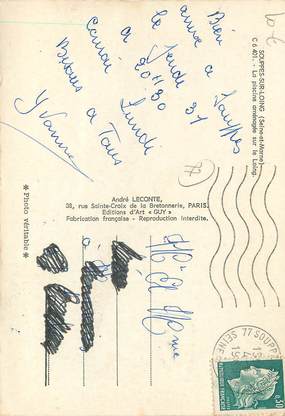 Bien
arrivé à Souppes
le jeudi 31
à 20h30
Lundi
Bisous à Tous
Yvonne
SOUPPES-SUR-LOING (Seine-et-Marne)
C 6401. - La piscine aménagée sur le Loing.
André LECONTE,
38, rue Sainte-Croix de la Bretonnerie, PARIS.
Editions d'Art « GUY »
Fabrication française - Reproduction Interdite.
* Photo véritable *
Mr et Mme
à
77 SOUPPE
SEINE
0,30
REPUBLIQUE FRANCAISE